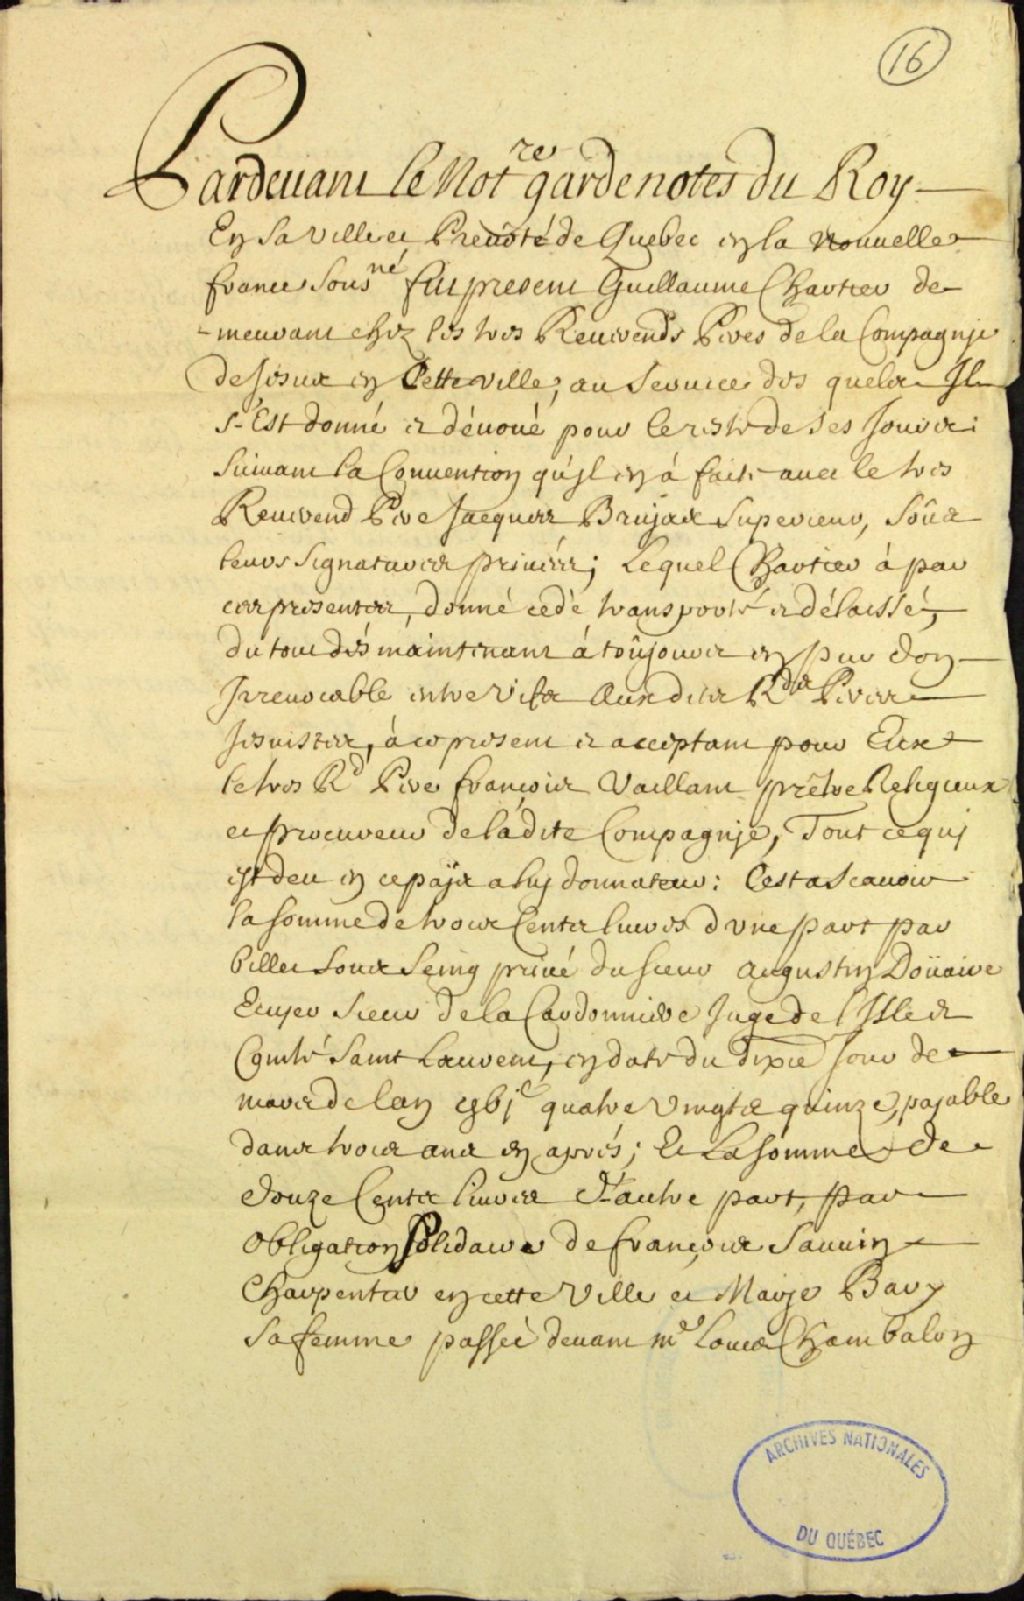 16
Pardeuant le Not.re gardenotes du Roy
En sa ville et Preuôté de Quebec en la Nouuelle
france sous.né fut present Guillaume Chartier de-
-meurant chez les tres Reuerends Peres de la Compagnje
de Jesus en Cette ville, au seruice des quels Jl
s'Est donné et déuoué pour le reste de ses Jours:
suiuant la Conuention qu'jl en à faite auec le tres
Reuerend Pere Jacques Brujas superieur, soûs
leurs signatures priuées; Lequel Chartier à par
ces presentes, donné cedé transporté et délaissé,
du tout dés maintenant à toûjours en pur don
Jrreuocable entre vifs Aux dits R.ds Peres
Jesuistes, à ce present et acceptant pour Eux
le tres R.d Pere françois Vaillant prêtre Religieux
et procureur de ladite Compagnje, Tout ce quj
est deu en ce païs a luy donnateur: C'est a scauoir
la somme de trois Cents liures d'vne part par
billet sous seing priué du sieur Augustin Doüaire
Ecuyer sieur de la Cardonniere Juge de l'Isle et
Comté saint Laurent, en date du dixe Jour de
mars de l'an 16bjc quatre vingts quinze, payable
dans trois ans en aprés; Et La somme de
douze Cents liures d'autre part, par
obligation solidaire de françois sauuin
Charpentier en cette Ville et Marje Bary
sa femme passée deuant m.e Louis Chambalon
ARCHIVES NATIONALES
DU QUÉBEC